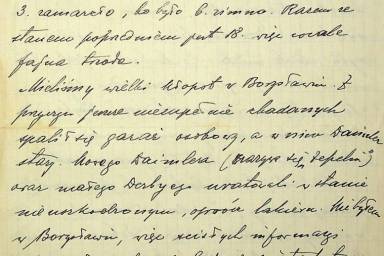 3. zamarzło, bo było 6. zimno. Razem ze
stanem poprzedniem jest 18. więc wcale
fajna środa.
Mieliśmy wielki kłopot w Borysławiu. Z
przyczyn jeszcze niezupełnie zbadanych
spalił się garaż osobowy, a w nim Daimler
stary. Nowego Daimlera (nazywa się Zepelin)
oraz małego Derby'ego uratowali w stanie
nieuszkodzonym, oprócz lakieru. Nie byłem
w Borysławiu, więc ścisłych informacji